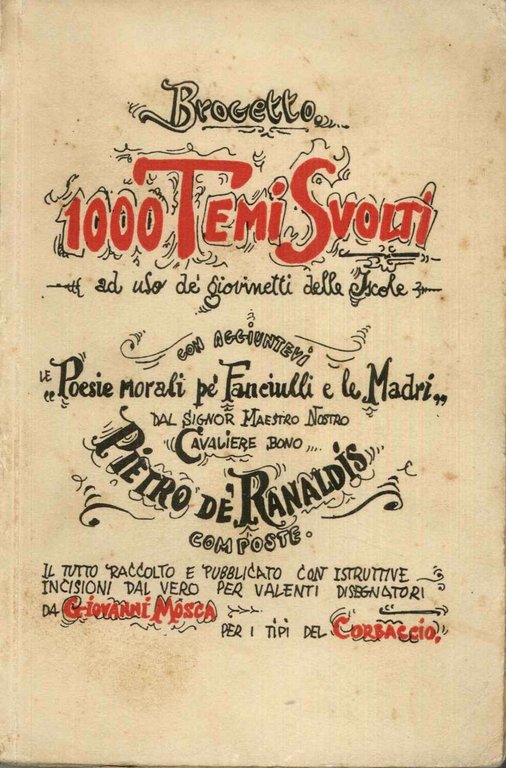 Brocetto
1000 Temi Svolti
ad uso de' giovinetti delle Iscole
CON AGGIUNTEVI
LE „Poesie morali pe' Fanciulli e le Madri„
DAL SIGNOR MAESTRO NOSTRO
CAVALIERE BONO
PIETRO DE' RANALDIS
COMPOSTE.
IL TUTTO RACCOLTO E PUBBLICATO CON ISTRUTTIVE
INCISIONI DAL VERO PER VALENTI DISEGNATORI
DA GIOVANNI MOSCA
PER I TIPI DEL CORBACCIO.